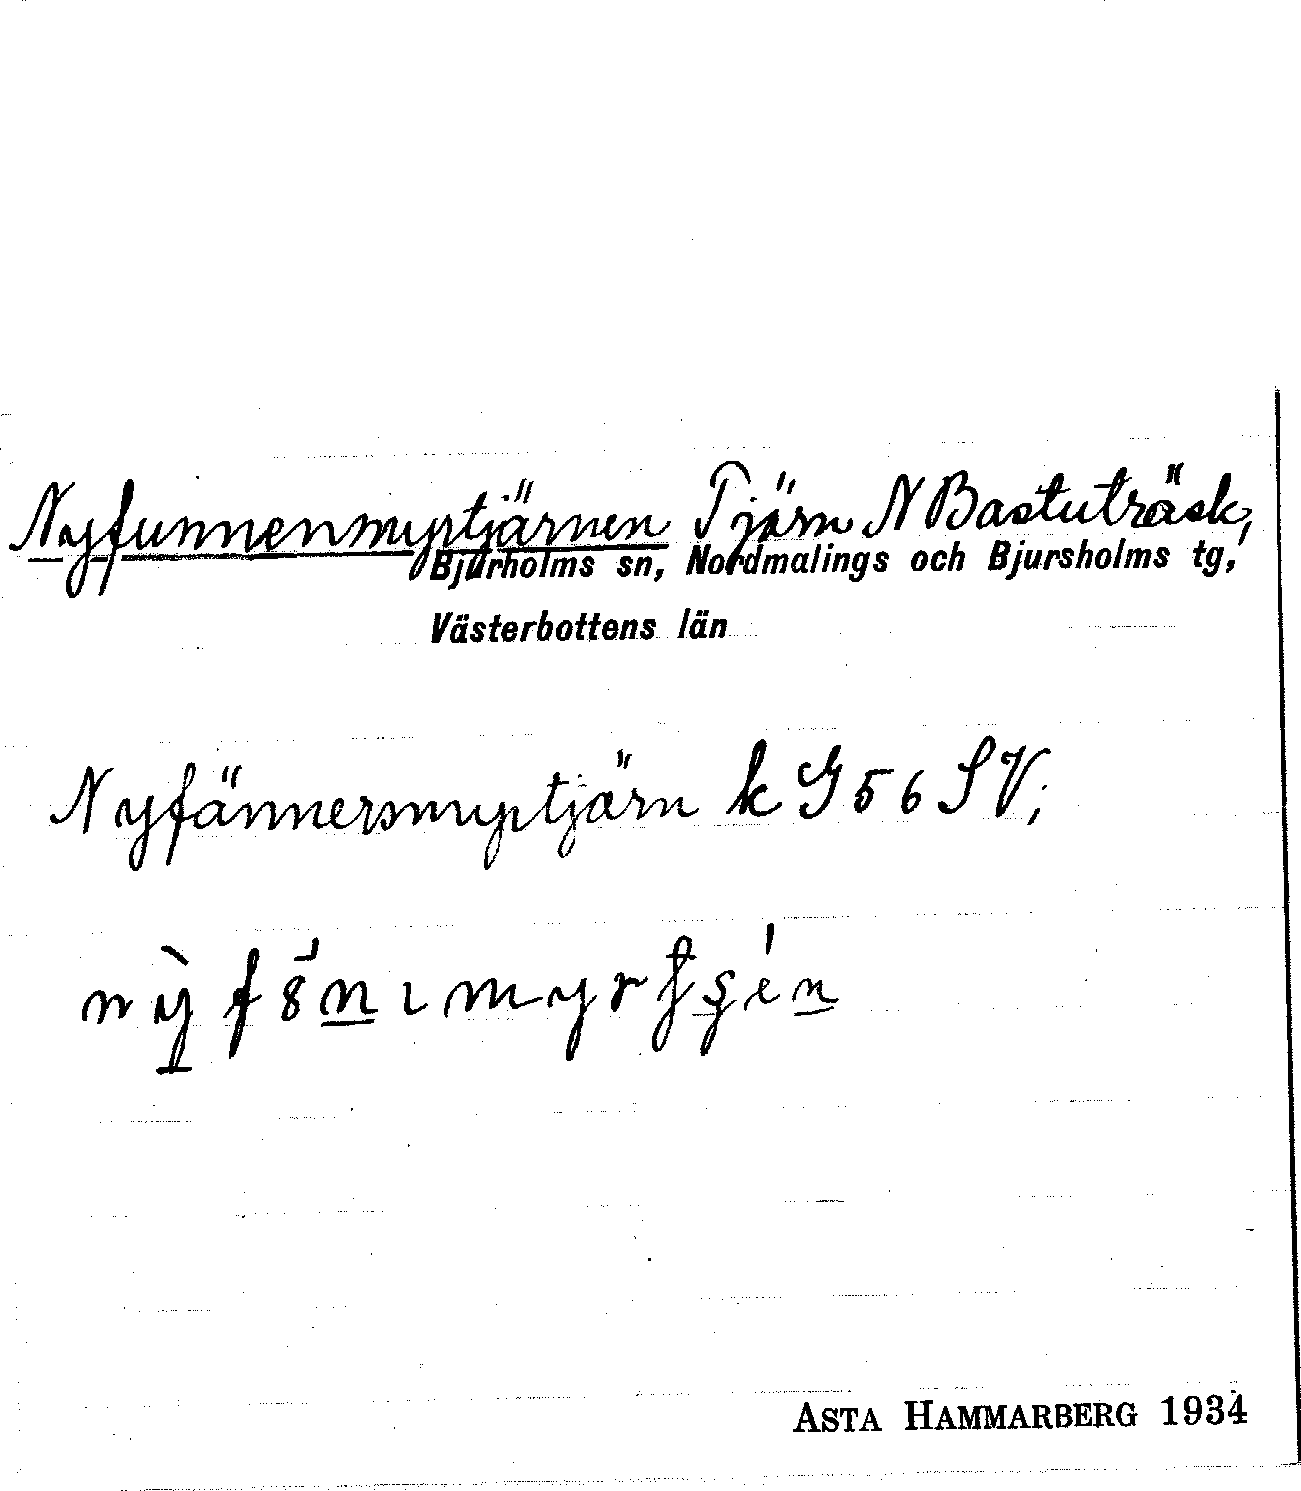 Nyfunnenmyrtjärnen Tjärn N Bastuträsk,
Bjurholms sn, Nordmalings och Bjursholms tg,
Västerbottens län
Nyfännersmyrtjärn k G 56 SV;
ASTA HAMMARBERG 1934